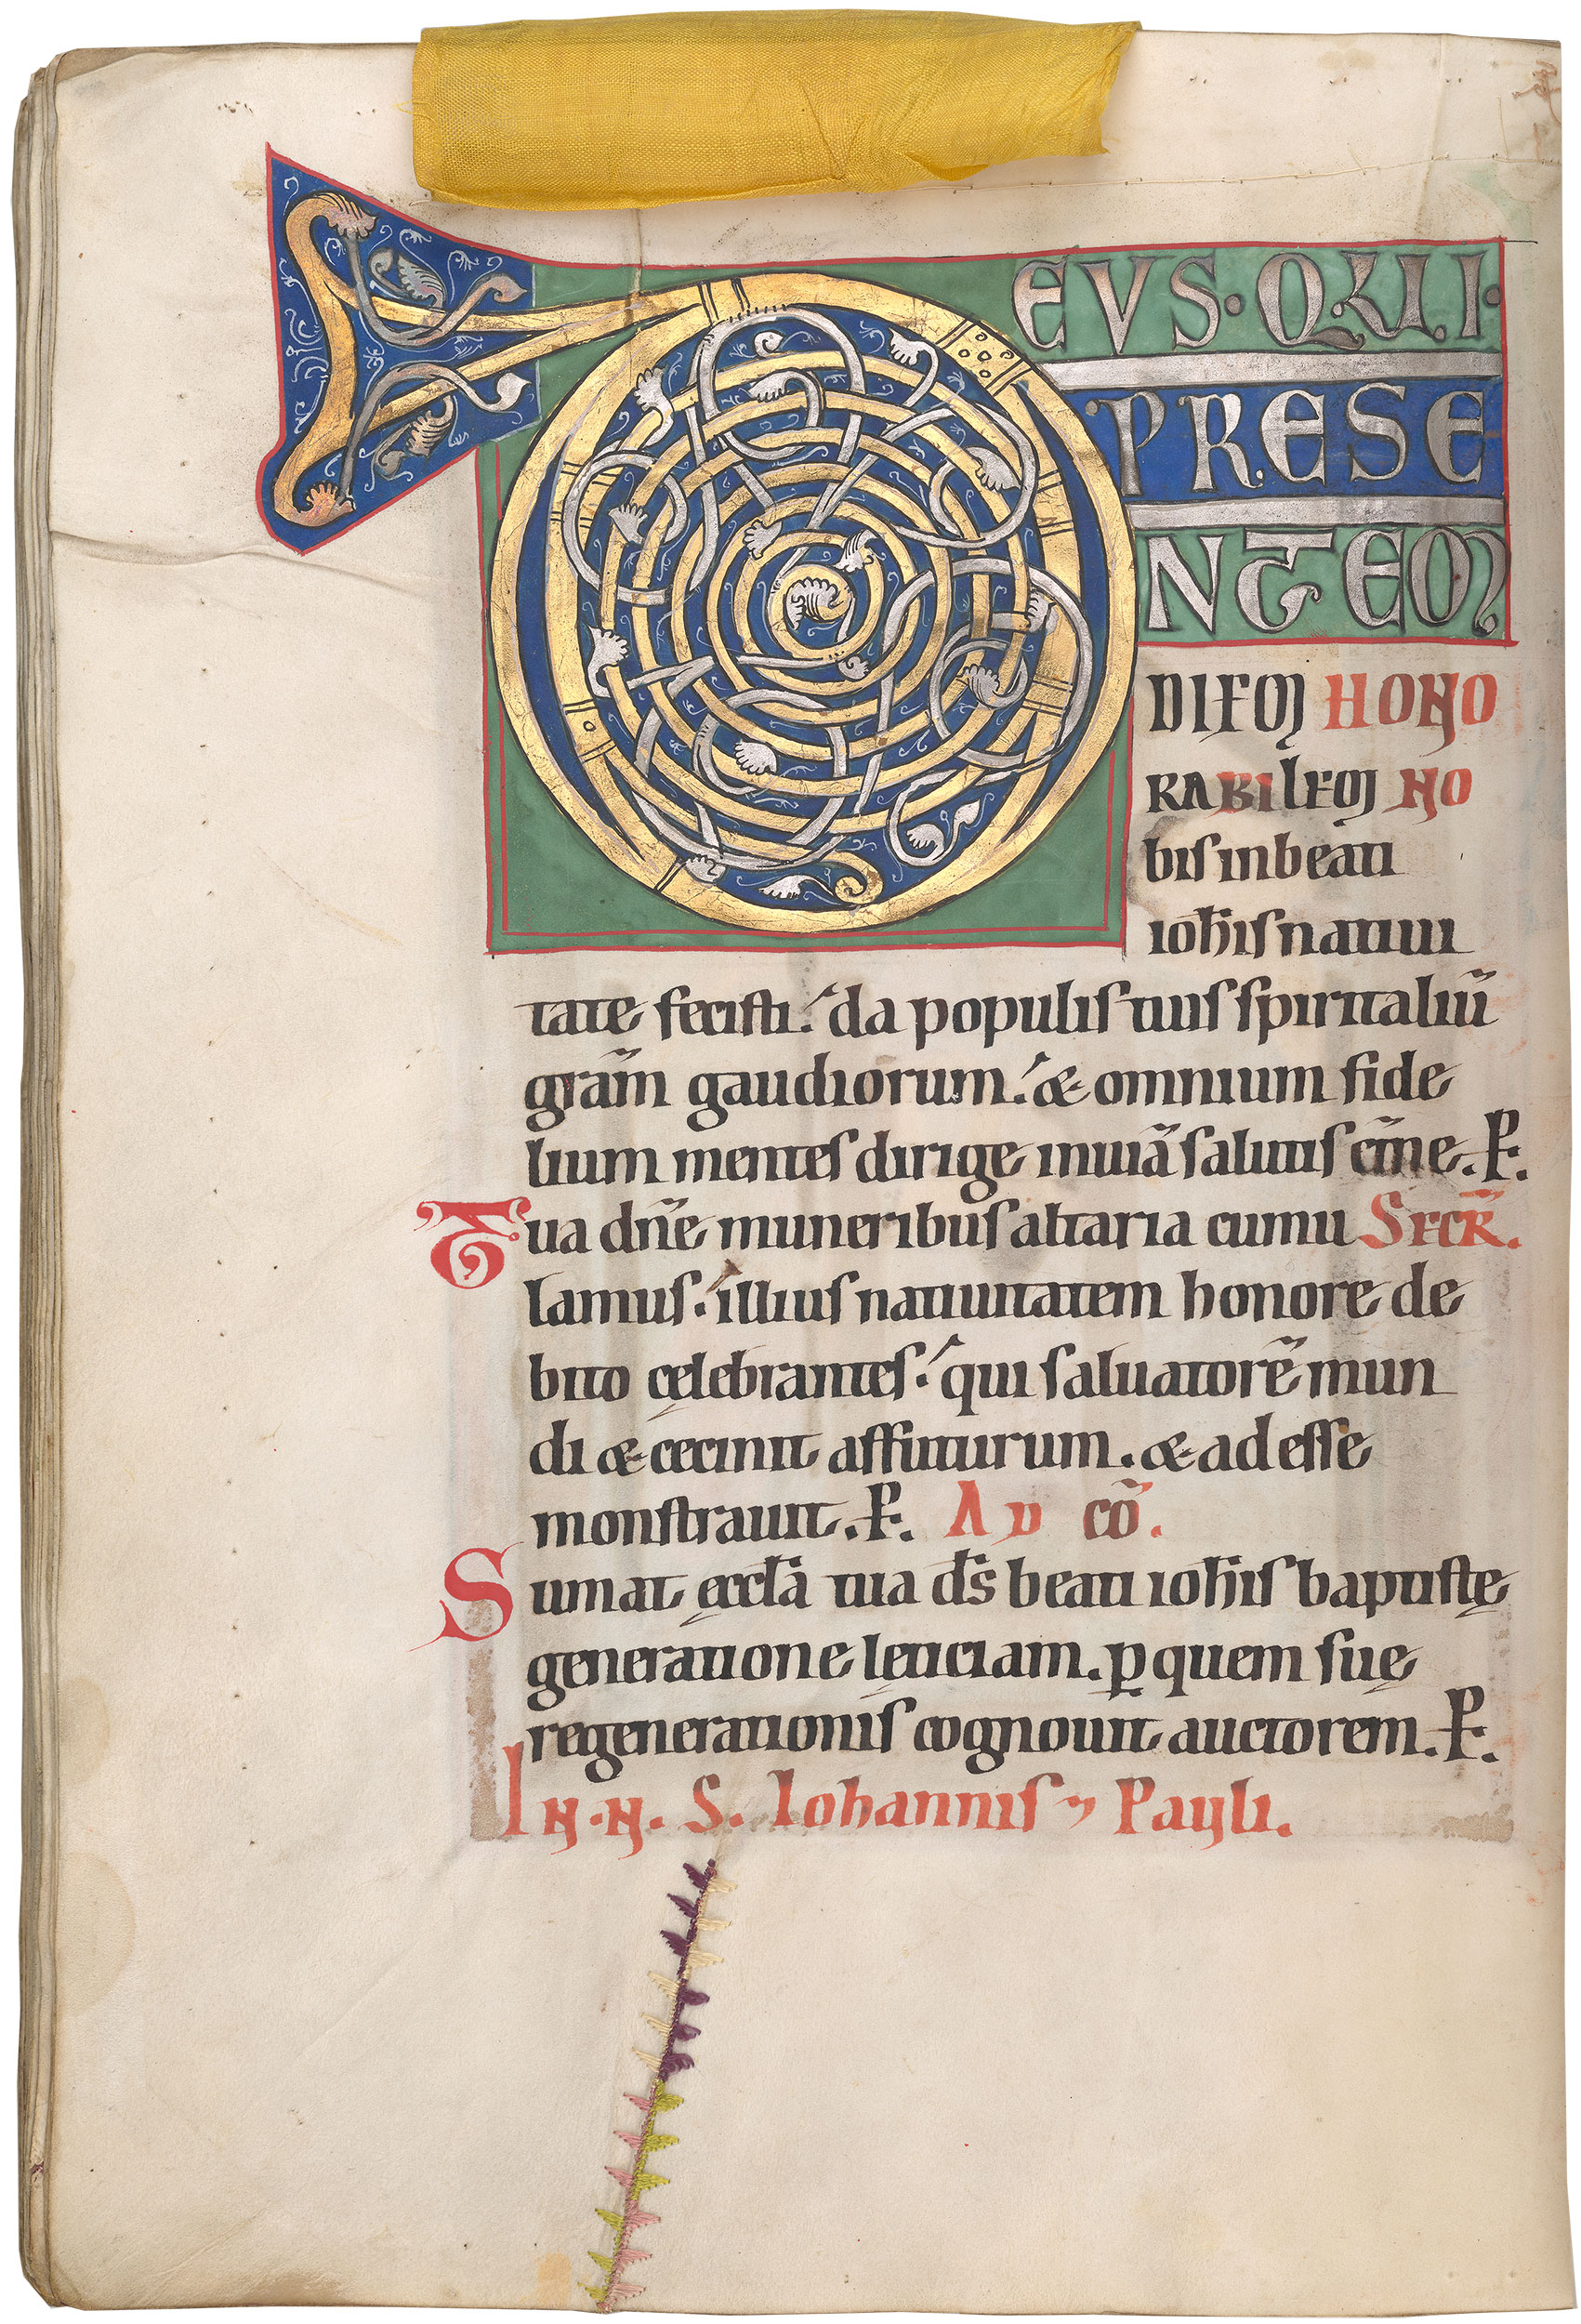 DEVS·QVI·
PRESE
NTEM
DIEM HONO
RABILEM NO
bis in beati
ioħis natiui
tate fecisti. da populis tuis spiritaliū
gr̄am gaudiorum. & omnium fide
lium mentes dirige in uiā salutis et̄ne. P.
Tua dn̄e muneribus altaria cumu SECR̄.
lamus. illius natiuitatem honore de
bito cęlebrantes. qui saluatorē mun
di & cecinit affuturum. & adesse
monstrauit. P. AD CŌ.
Sumat ęccl̄a tua d̄s beati ioħis baptistę
generatione lęticiam. ꝑ quem suę
regenerationis cognouit auctorem. P.
IN·N. S. Iohannis ⁊ Pauli.